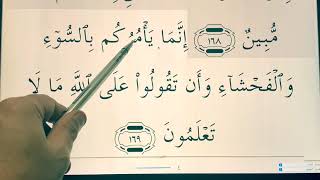 مُّبِينٌ ١٦٨ إِنَّمَا يَأْمُرُكُم بِٱلسُّوٓءِ
وَٱلْفَحْشَآءِ وَأَن تَقُولُوا۟ عَلَى ٱللَّهِ مَا لَا
تَعْلَمُونَ ١٦٩
٤